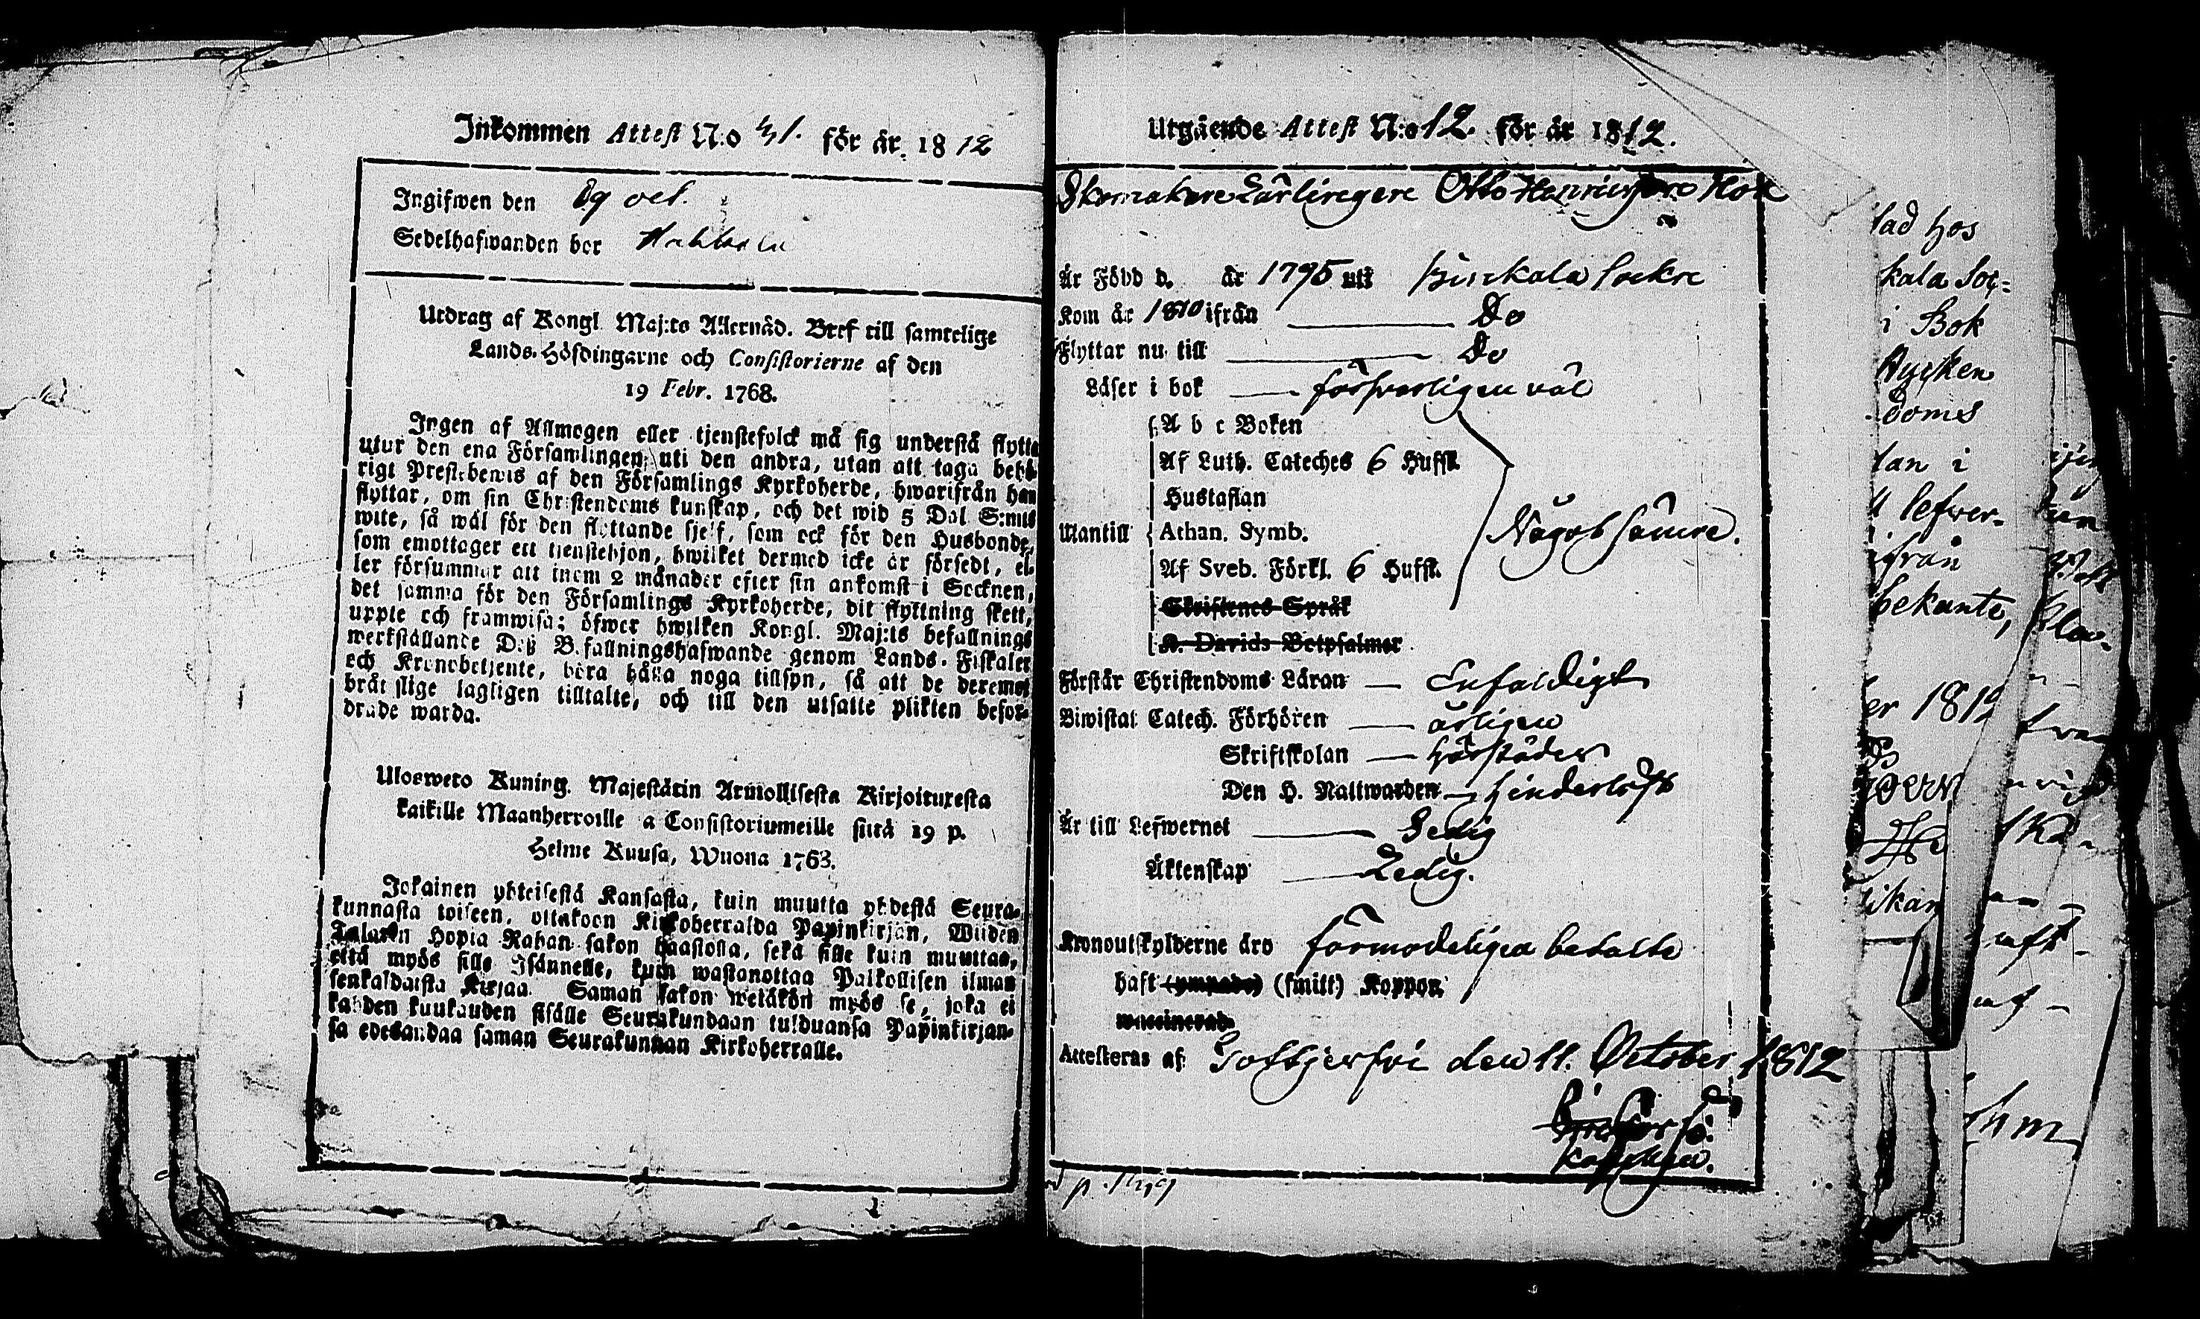 Inkommen Attest N:o 41. för år 1812
Ingifwen den 29 oct.
Sedelhafwanden bor
Utdrag af Kongl. Maj:ts Allernåd. Bref till samtelige
Lands-Höfdingarne och Consistorierne af den
19 Febr. 1768.
Ingen af Allmogen eller tjenstefolck må sig understå flytta
utur den ena Församlingen uti den andra, utan att taga behö-
rigt Prestebewis af den Församlings Kyrkoherde, hwarifrån han
flyttar, om sin Christendoms kunskap, och det wid 5 Dal S:mts
wite, så wäl för den flyttande sjelf, som ock för den Husbonde,
som emottager ett tienstehjon, hwilket dermed icke är försedt, el-
ler försummar att inom 2 månader efter sin ankomst i Socknen,
det samma för den Församlings Kyrkoherde, dit flyttning skett,
uppte och framwisa; öfwer hwilken Kongl. Maj:ts befallnings
werkställande Deß Befallningshafwande genom Lands-Fiskaler
och Kronobetjente, böra hålla noga tillsyn, så att de deremot
bråt slige lagligen tilltalte, och till den utsatte plikten befor-
drade warda.
Ulosweto Kuning. Majestätin Armollisesta Kirjoituxesta
kaikille Maanherroille ja Consistoriumeille siitä 19 p.
Helme Kuusa, Wuona 1763.
Jokainen yhteisestä Kansasta, kuin muutta yhdestä Seura-
kunnasta toiseen, ottakoon Kirkoherralda Papinkirjan, Wiiden
Talarin Hopia Rahan sakon haastolla, sekä sille kuin muuttaa,
että myös sille Isännelle, kuin wastanottaa Palkollisen ilman
senkaldaista Kirjaa. Saman sakon wetäkön myös se, joka ei
kahden kuukauden sisälle Seurakundaan tulduansa Papinkirjan-
sa edesandaa saman Seurakunnan Kirkoherralle.
Utgående Attest N:o 12. för år 1812.
Skomakare Lärlingen Otto Henricsson Hok
Är Född d. år 1795 uti Pirckala Sockn
Kom år 1810 ifrån Do
Flyttar nu till Do
Läser i bok försvarligen väl
A b c Boken
Af Luth. Cateches 6 Hufst.
Hustaflan
Wantill Athan. Symb. Något sämre.
Af Sveb. Förkl. 6 Hufst.
Skriftenes Språk
K. Davids Botpsalmer
Förstår Christendoms Läran Enfaldigt
Biwistat Catech. Förhören årligen
Skriftskolan härstädes
Den H. Nattwarden hinderlöst
Är till Lefwernet Sedig
Äktenskap Ledig.
Kronoutskylderne äro förmodeligen betalte
haft (ympade) (smitt) Koppor,
waccinerad
Attesteras af den 11. October 1812
lad hos
kala Soc-
i Bok
Mycken
doms
dan i
lefwer-
ifrån
bekante,
er 1812